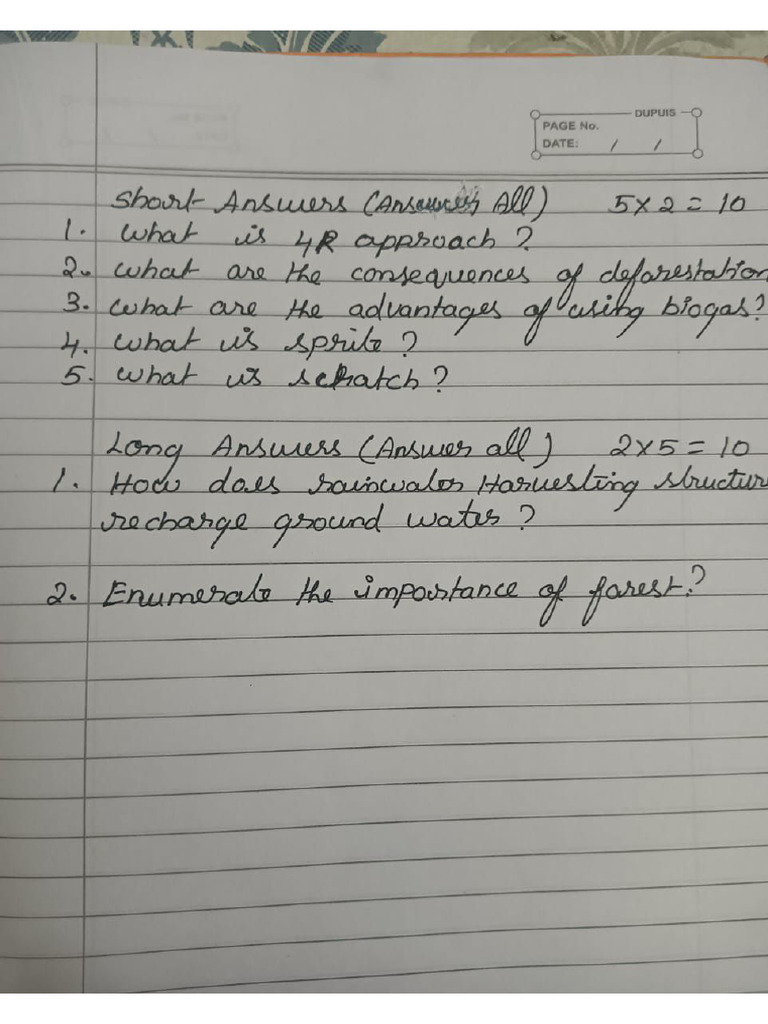 DUPUIS
PAGE No.
DATE: / /
Short Answers (Answer All) 5 x 2 = 10
1. What is 4R approach?
2. What are the consequences of deforestation
3. What are the advantages of using biogas?
4. What is sprite?
5. What is scratch?
Long Answers (Answer all) 2 x 5 = 10
1. How does rainwater Harvesting structur
recharge ground water?
2. Enumerate the importance of forest?